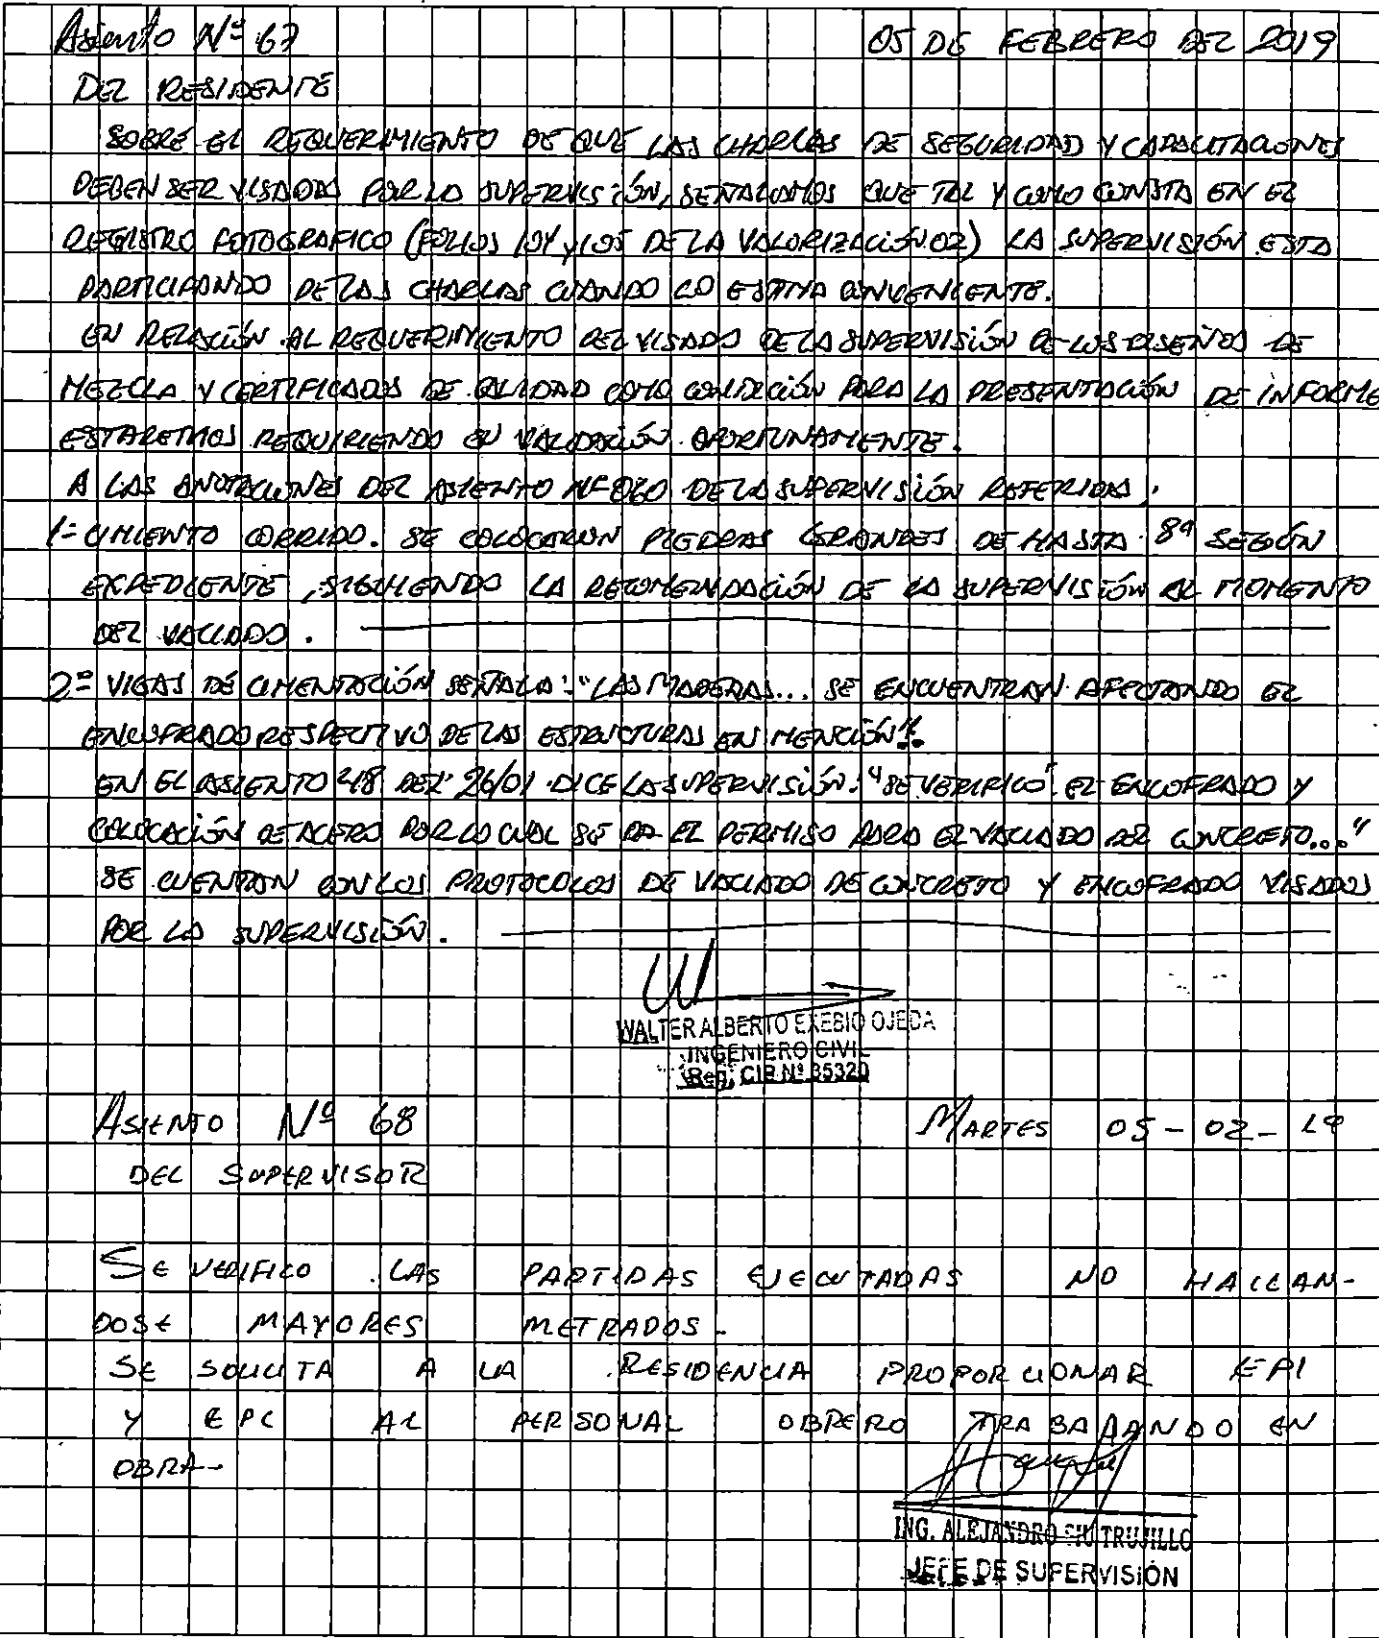 Asiento Nº 67 05 DE FEBRERO DEL 2019
DEL RESIDENTE
SOBRE EL REQUERIMIENTO DE QUE LAS CHARLAS DE SEGURIDAD Y CAPACITACIONES
DEBEN SER VISADAS POR LA SUPERVISIÓN, SEÑALAMOS QUE TAL Y COMO CONSTA EN EL
REGISTRO FOTOGRAFICO (FOLIOS 104 y 105 DE LA VALORIZACIÓN 02) LA SUPERVISIÓN ESTA
PARTICIPANDO DE LAS CHARLAS CUANDO LO ESTIMA CONVENIENTE.
EN RELACIÓN AL REQUERIMIENTO DEL VISADO DE LA SUPERVISIÓN DE LOS DISEÑOS DE
MEZCLA Y CERTIFICADOS DE CALIDAD COMO CONDICIÓN PARA LA PRESENTACIÓN DE INFORME
ESTAREMOS REQUIRIENDO SU VALIDACIÓN OPORTUNAMENTE.
A LAS ANOTACIONES DEL ASIENTO Nº 060 DE LA SUPERVISIÓN REFERIDAS,
1- CIMIENTO CORRIDO. SE COLOCARON PIEDRAS GRANDES DE HASTA 8" SEGÚN
EXPEDIENTE, SIGUIENDO LA RECOMENDACIÓN DE LA SUPERVISIÓN AL MOMENTO
DEL VACIADO.
2= VIGAS DE CIMENTACIÓN SEÑALA: "LAS MADERAS... SE ENCUENTRAN AFECTANDO EL
ENCOFRADO RESPECTIVO DE LAS ESTRUCTURAS EN MENCIÓN".
EN EL ASIENTO 48 DEL 26/01 DICE LA SUPERVISIÓN: "SE VERIFICO EL ENCOFRADO Y
COLOCACIÓN DE ACERO POR LO CUAL SE DA EL PERMISO PARA EL VACIADO DEL CONCRETO..."
SE CUENTAN CON LOS PROTOCOLOS DE VACIADO DE CONCRETO Y ENCOFRADO VISADOS
POR LA SUPERVISIÓN.
WALTER ALBERTO EXEBIO OJEDA
INGENIERO CIVIL
Reg. CIP Nº 35320
ASIENTO Nº 68 MARTES 05-02-19
DEL SUPERVISOR
SE VERIFICO LAS PARTIDAS EJECUTADAS NO HALLAN-
DOSE MAYORES METRADOS.
SE SOLICITA A LA RESIDENCIA PROPORCIONAR EPI
Y EPC AL PERSONAL OBRERO TRABAJANDO EN
OBRA.
ING. ALEJANDRO SIU TRUJILLO
JEFE DE SUPERVISIÓN